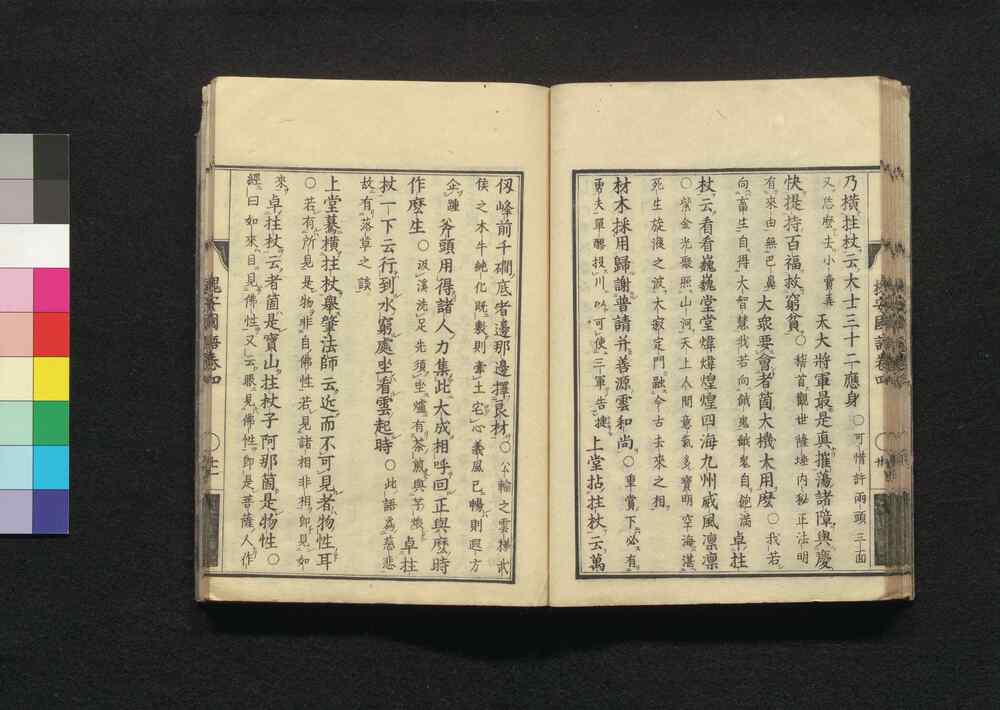 乃橫拄杖云大士三十二應身○可惜許兩頭三面
又恁麼去小賣弄天大將軍最是眞摧蕩諸障與慶
快提持百福救窮貧○稽首觀世隆埵內秘正法明
有來由無巴鼻大衆要會者箇大機大用麼○我若
向畜生自得大智慧我若向餓鬼餓鬼自飽滿卓拄
杖云看看巍巍堂堂煒煒煌煌四海九州威風凜凜
○紫金光聚照山河天上人間意氣多寶明空海湛
死生旋澓之波大寂定門融今古去來之相
材木採用歸謝普請幷善源雲和尚○重賞下必有
勇夫單醪投川以可使三軍告捷上堂拈拄杖云萬
槐安國語卷四
仭峰前千磵底者邊那邊擇良材○公輸之雲梯武
侯之木牛純化既數則牽土宅心義風已暢則遐方
企踵斧頭用得諸人力集此大成相呼回正與麼時
作麼生○汲溪洗足先須坐爐有茶煎與芋燉卓拄
杖一下云行到水窮處坐看雲起時○此語爲慈悲
故有落草之談
上堂驀橫拄杖擧肇法師云近而不可見者物性耳
○若有所見是物非自佛性若見諸相非相卽見如
來卓拄杖云者箇是寶山拄杖子阿那箇是物性○
經曰如來目見佛性又云眼見佛性卽是菩薩人作
槐安國語卷四